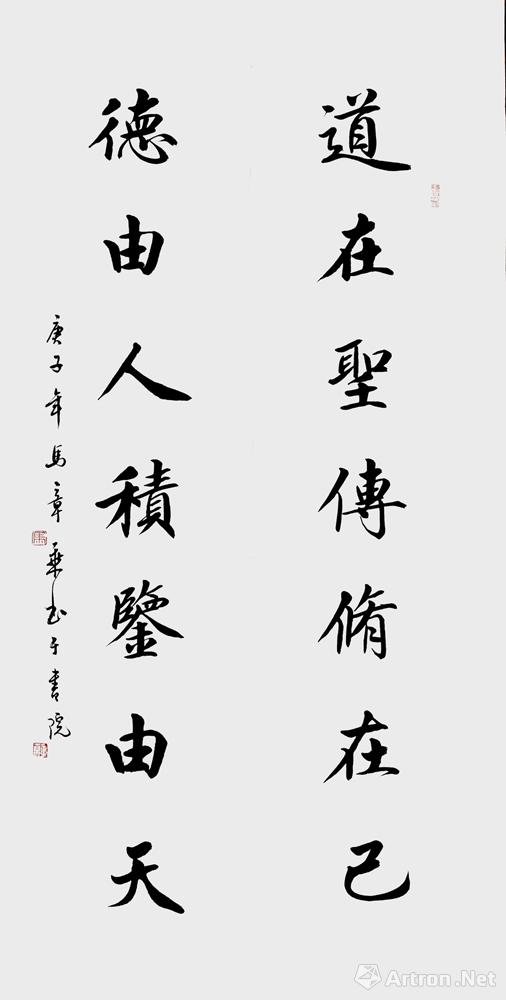 道在聖傳脩在己
德由人積鑒由天
庚子年馬章乘書于書院
Artron.Net